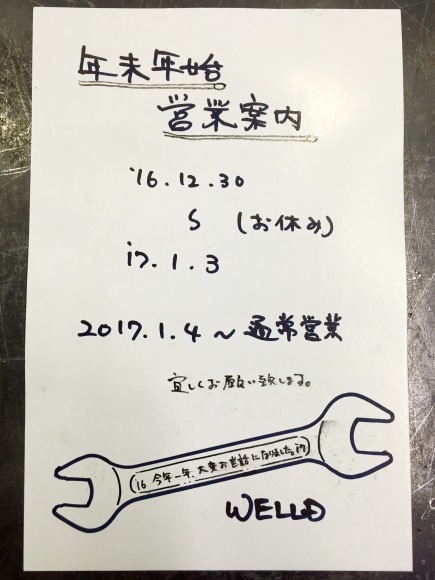 年末年始
営業案内
'16.12.30
S (お休み)
'17.1.3
2017.1.4~通常営業
宜しくお願い致します。
'16 今年一年、大変お世話になりました。'17
WELLD